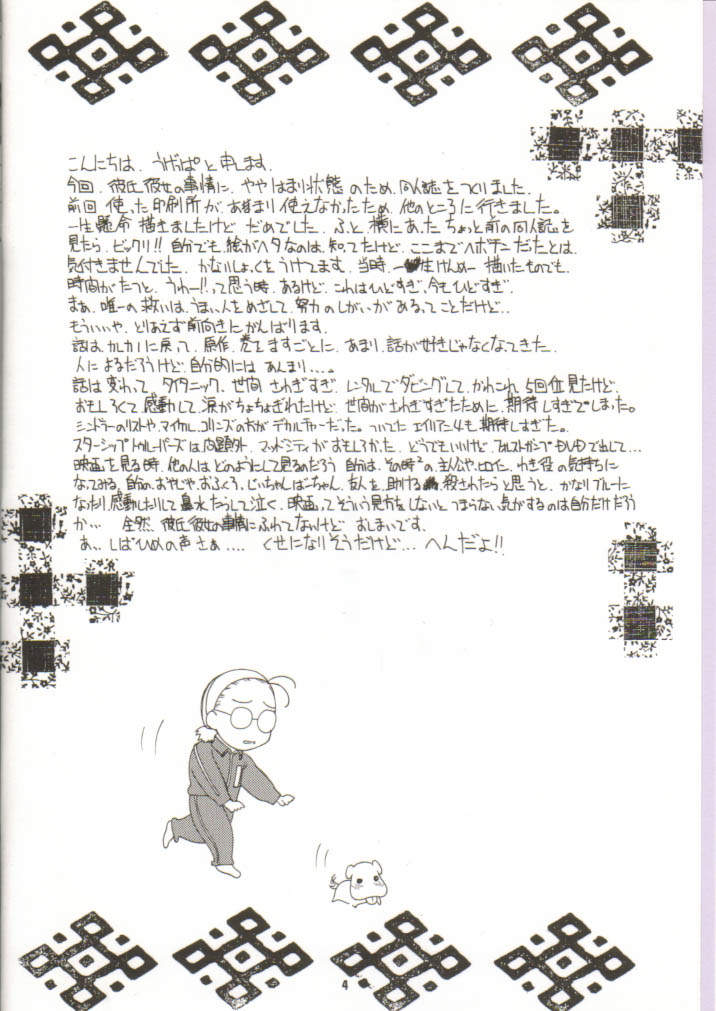 こんにちは、うげっぱと申します。
今回、彼氏彼女の事情に、ややはまり状態のため、同人誌をつくりました。
前回使った印刷所が、あまり使えなかったため、他のところに行きました。
一生懸命描きましたけどだめでした。ふと横にあったちょっと前の同人誌を
見たら、ビックリ!!自分でも絵がヘタなのは、知ってたけど、ここまでヘボチンだったとは、
気付きませんでした。かなりしょっくをうけてます。当時、一生けんめー描いたものでも、
時間がたつと、うわー!!って思う時、あるけど、これはひどすぎ、今もひどすぎ。
まぁ、唯一の救いは、うまい人をめざして、努力のしがいがあるってことだけど…
もういいや、とりあえず前向きにがんばります。
話はカレカノに戻って、原作、巻をますごとに、あまり、話が好きじゃなくなてきた。
人によるだろうけど、自分的にはあんまり…。
話は変わって、タイタニック、世間さわぎすぎ、レンタルでダビングして、かれこれ5回位見たけど、
おもしろくて感動して、涙がちょちょぎれたけど、世間がさわぎすぎたために、期待しすぎてしまった。
シンドラーのリストや、マイケル・コリンズの方がデカルチャーだった。ついでにエイリアン4も、期待しすぎた。
スターシップトゥルーパーズは問題外、マッドシティがおもしろかった、どうでもいいけど、フォレストガンプもDVDで出して…
映画を見る時、他の人はどのようにして見るのだろう 自分は、その時の主人公や、ヒロイン、わき役の気持ちに
なってみる、自分のおやじや、おふくろ、じいちゃんばーちゃん、友人を、助ける 殺されたらと思うと、かなりブルーに
なったり、感動したりして鼻水たらして泣く、映画ってそういう見方をしないと、つまらない気がするのは自分だけだろう
か… 全然、彼氏彼女の事情にふれてないけど、おしまいです。
あ、しばひめの声さぁ…. くせになりそうだけど… へんだよ!!
4